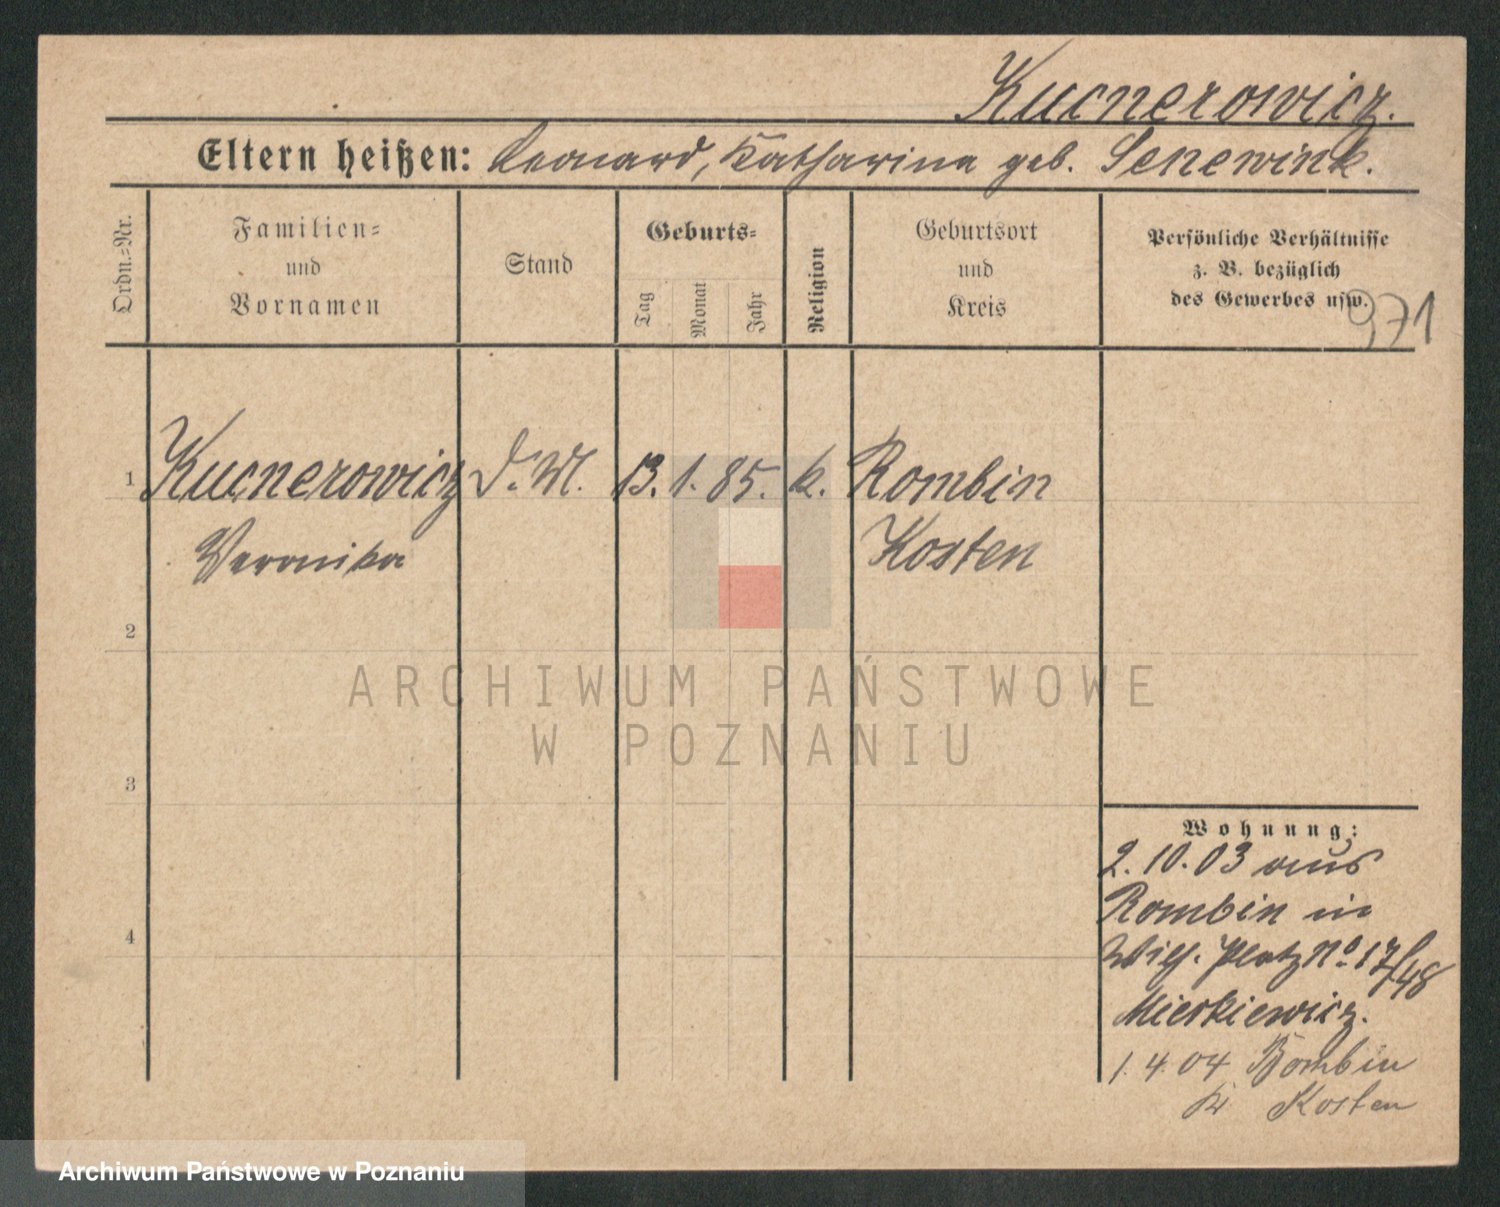 Kucnerowicz.
Eltern heißen: Leonard, Katharina geb. Senewink.
Ordn.-Nr.
Familien-
und
Vornamen
Stand
Geburts-
Tag
Monat
Jahr
Religion
Geburtsort
und
Kreis
Persönliche Verhältnisse
z. B. bezüglich
des Gewerbes usw.
971
1 Kucnerowicz D. M. 13. 1. 85. k. Rombin
Veronika Kosten
2
3
4
Wohnung:
2.10.03 aus
Rombin in
Wilh. Platz No 17/48
Mieckiewicz.
1. 4. 04 Rombin
Kr Kosten
ARCHIWUM PAŃSTWOWE
W POZNANIU
Archiwum Państwowe w Poznaniu